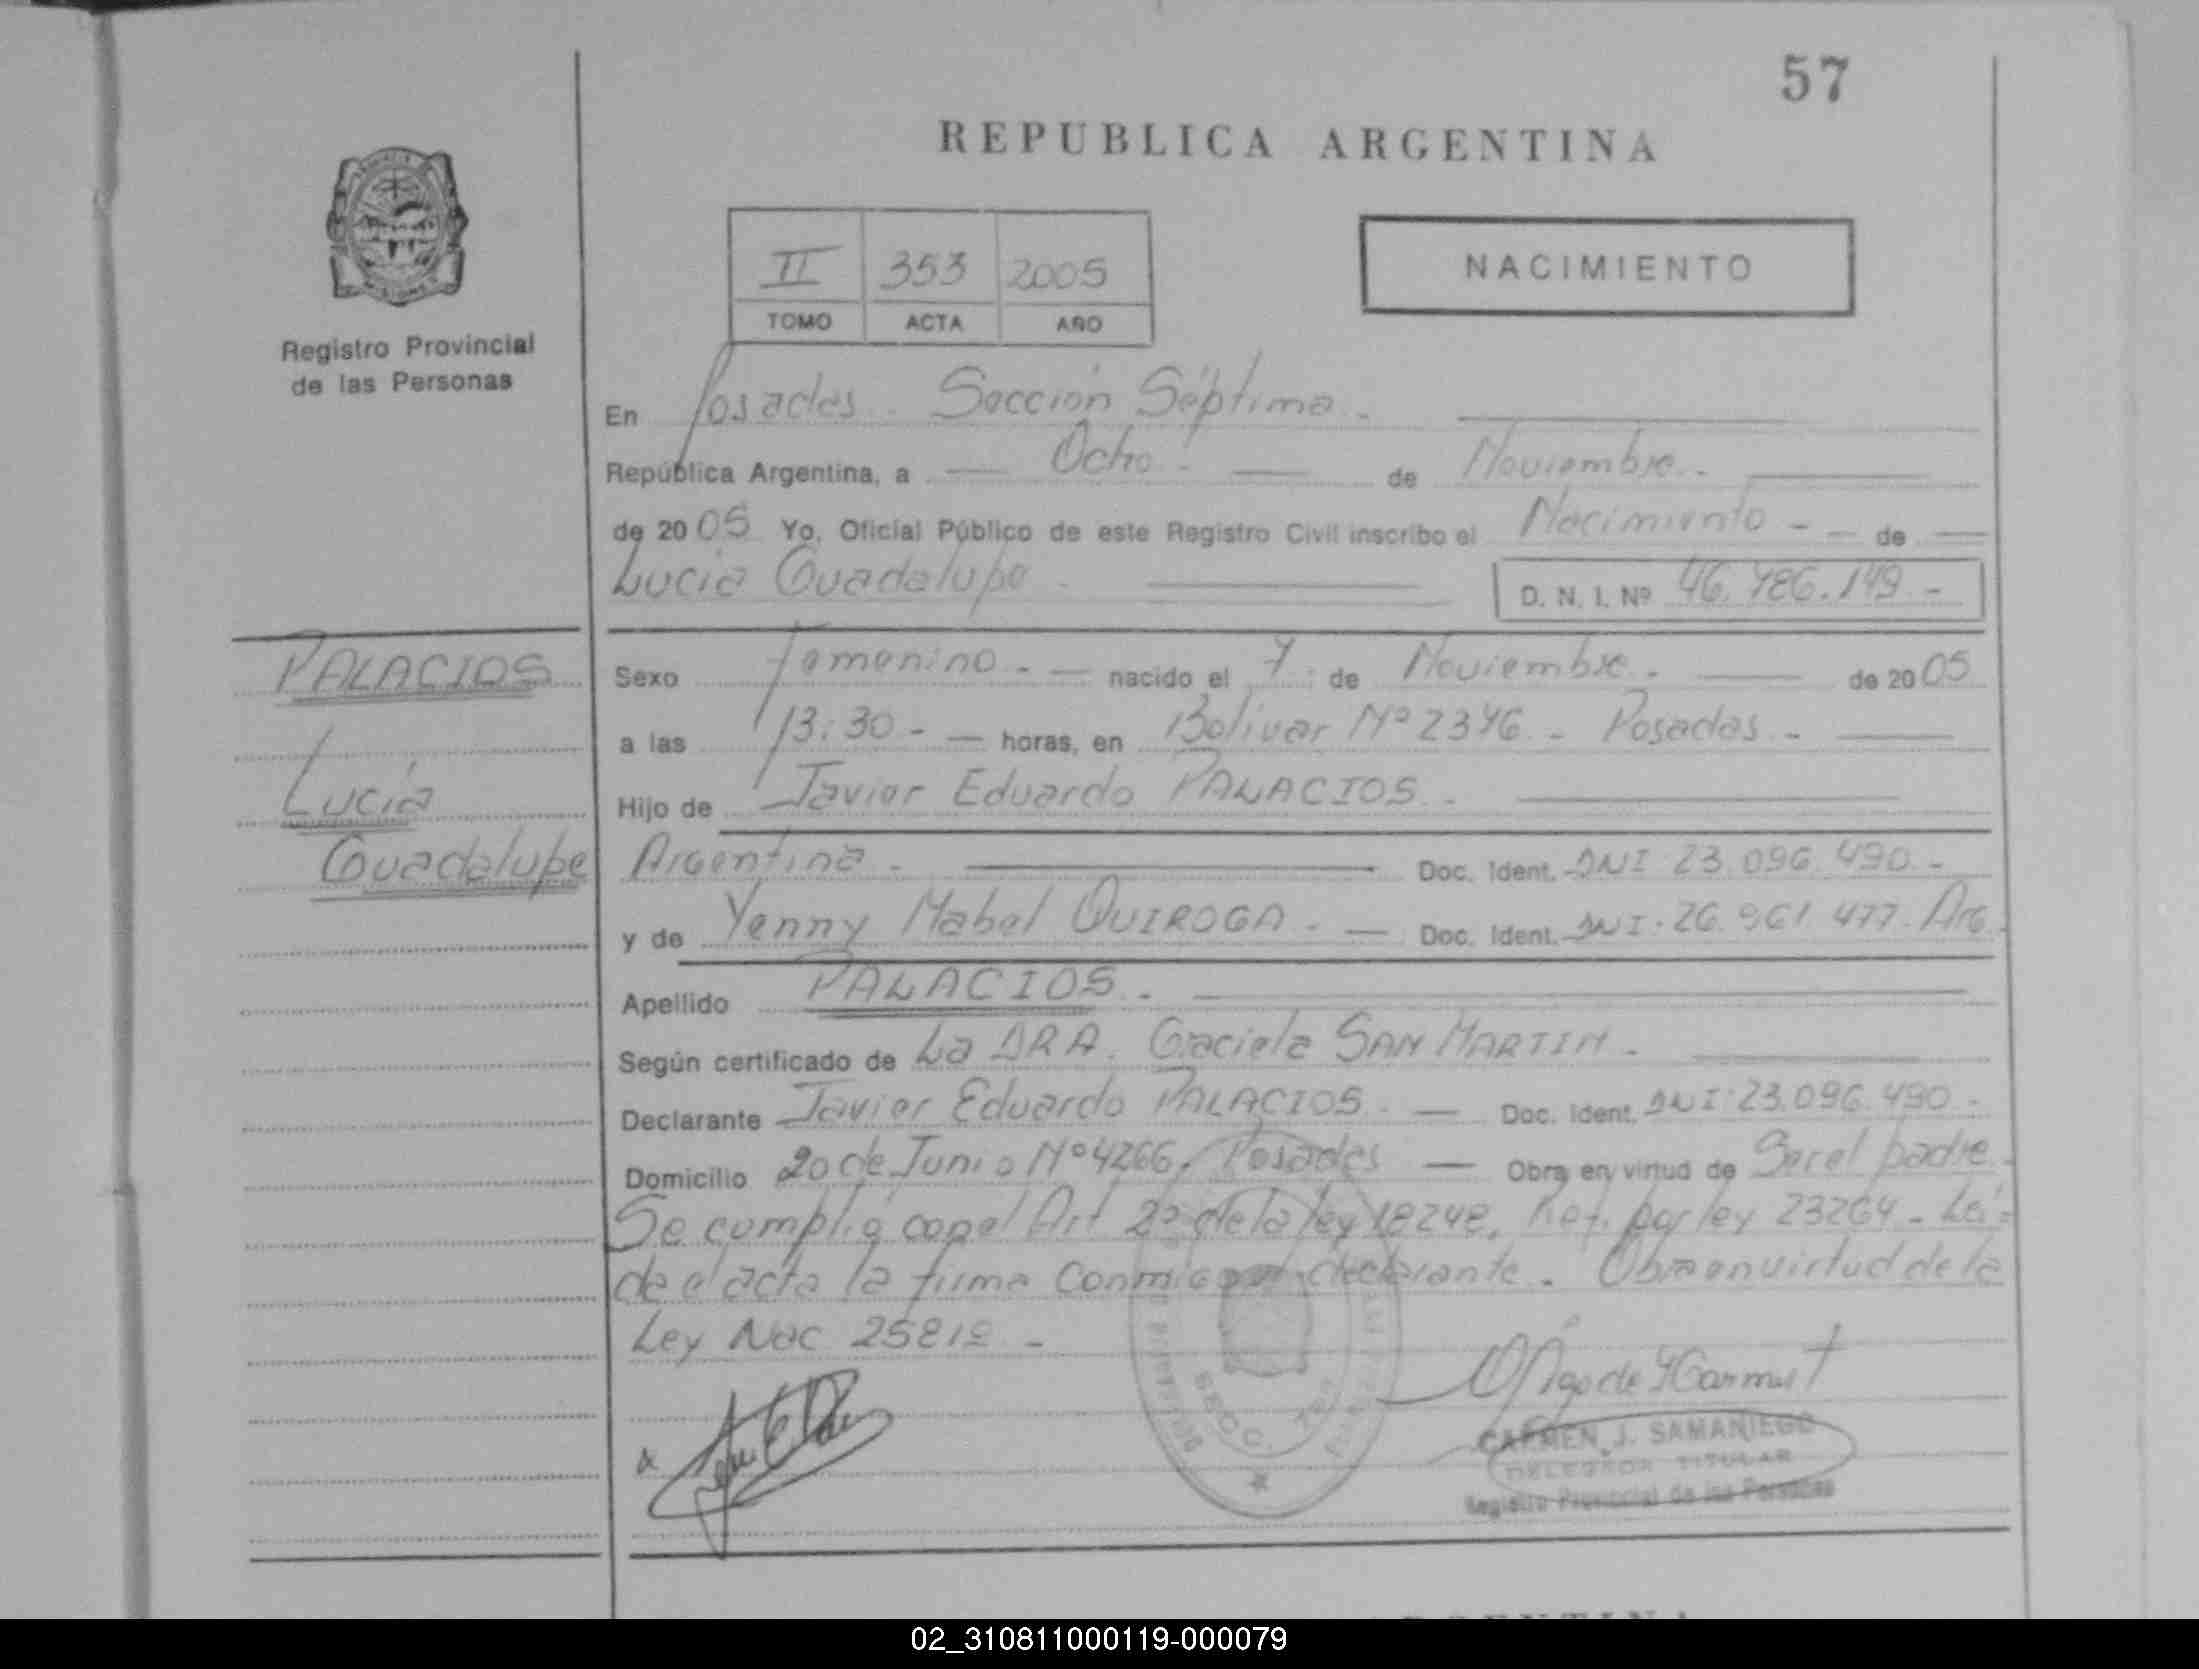 57
REPUBLICA ARGENTINA
II 353 2005
TOMO ACTA AÑO
NACIMIENTO
Registro Provincial
de las Personas
En Posadas. Sección Séptima.
República Argentina, a Ocho. de Noviembre.
de 2005 Yo, Oficial Público de este Registro Civil inscribo el Nacimiento - de
Lucia Guadalupe D. N. I. Nº 46.786.149.-
PALACIOS
Lucía
Guadalupe
Sexo femenino. - nacido el 7 de Noviembre. de 2005
a las 13:30 - horas, en Bolivar Nº 2376 - Posadas. -
Hijo de Javier Eduardo PALACIOS.
Argentina. Doc. Ident. DNI 23.096.490.-
y de Yenny Mabel QUIROGA. - Doc. Ident. DNI. 26.961.477. Arg.
Apellido PALACIOS.
Según certificado de La DRA. Graciela SAN MARTIN.
Declarante Javier Eduardo PALACIOS. - Doc. Ident. DNI: 23.096.490.
Domicilio 20 de Junio Nº 4266, Posadas - Obra en virtud de Ser el padre.
Se cumplió con el Art 2º de la ley 18248, Ref. por ley 23264 - Leí-
da el acta la firma Conmigo el declarante. Obra en virtud de la
Ley Nac 25819 -
SECC. 7ma
CARMEN J. SAMANIEGO
DELEGADA TITULAR
Registro Provincial de las Personas
02_310811000119-000079